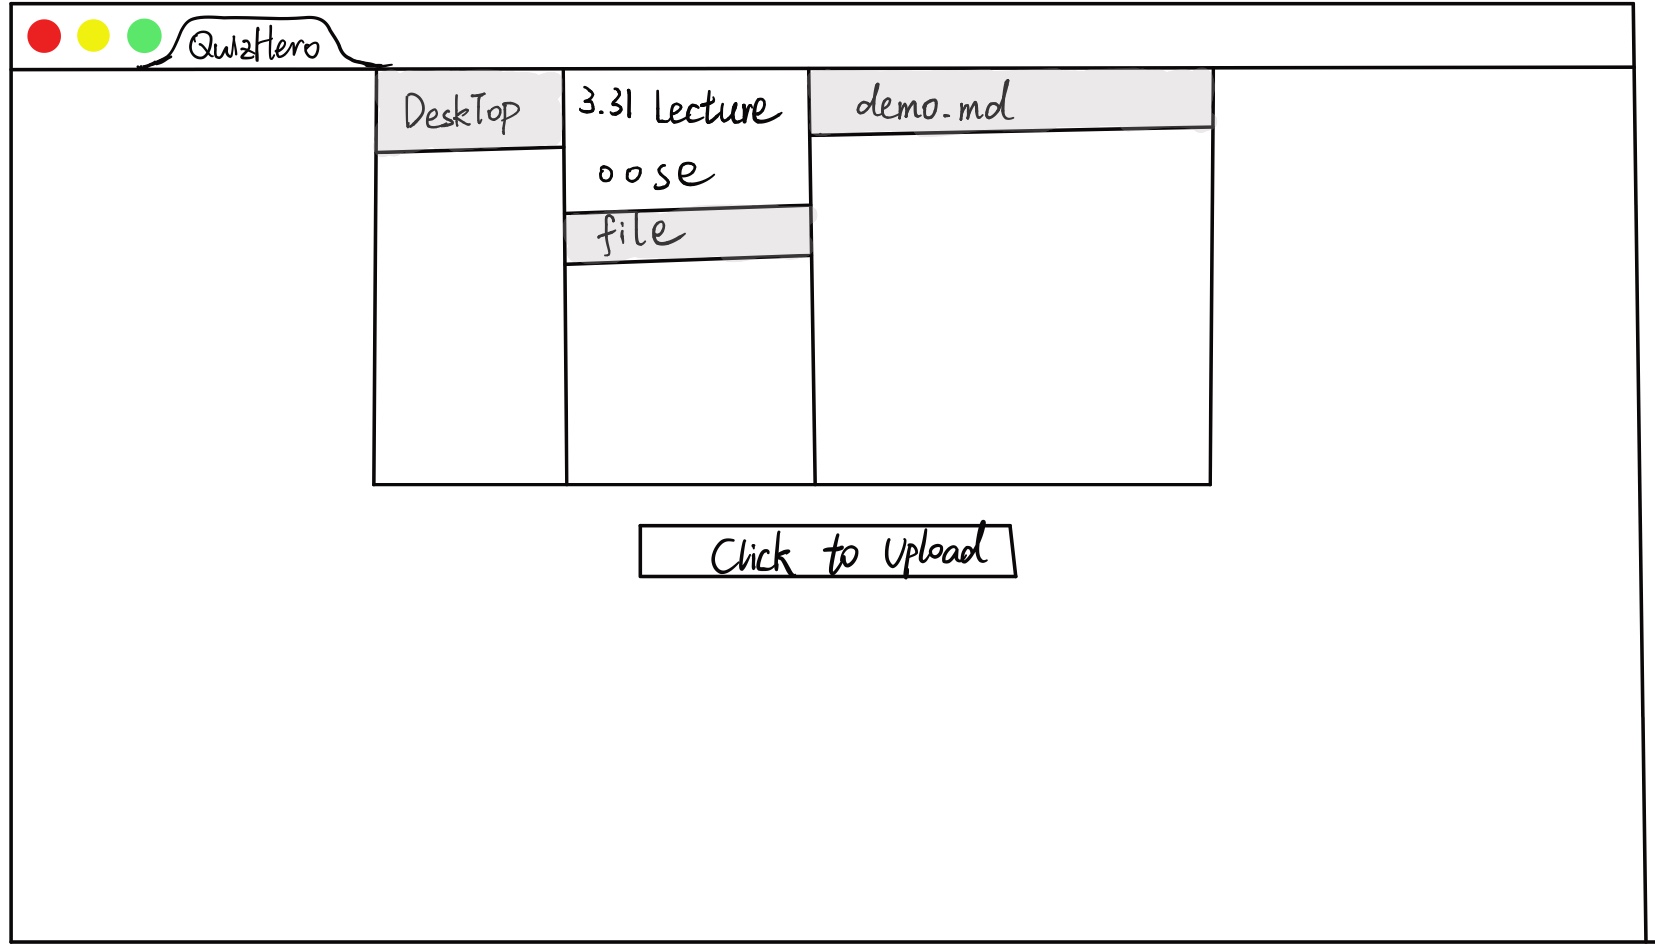 QuizHero
DeskTop
3.31 Lecture
oose
file
demo.md
Click to Upload